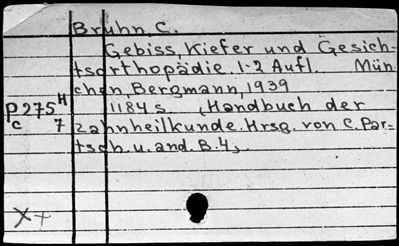 Bruhn, C.
Gebiss, Kiefer und Gesich-
tsorthopädie. 1-2 Aufl. Mün-
chen, Bergmann, 1939
P 275 H 1184 s. (Handbuch der
c 7 zahnheilkunde. Hrsg. von C. Par-
tsch. u. and. B. 4)
X+